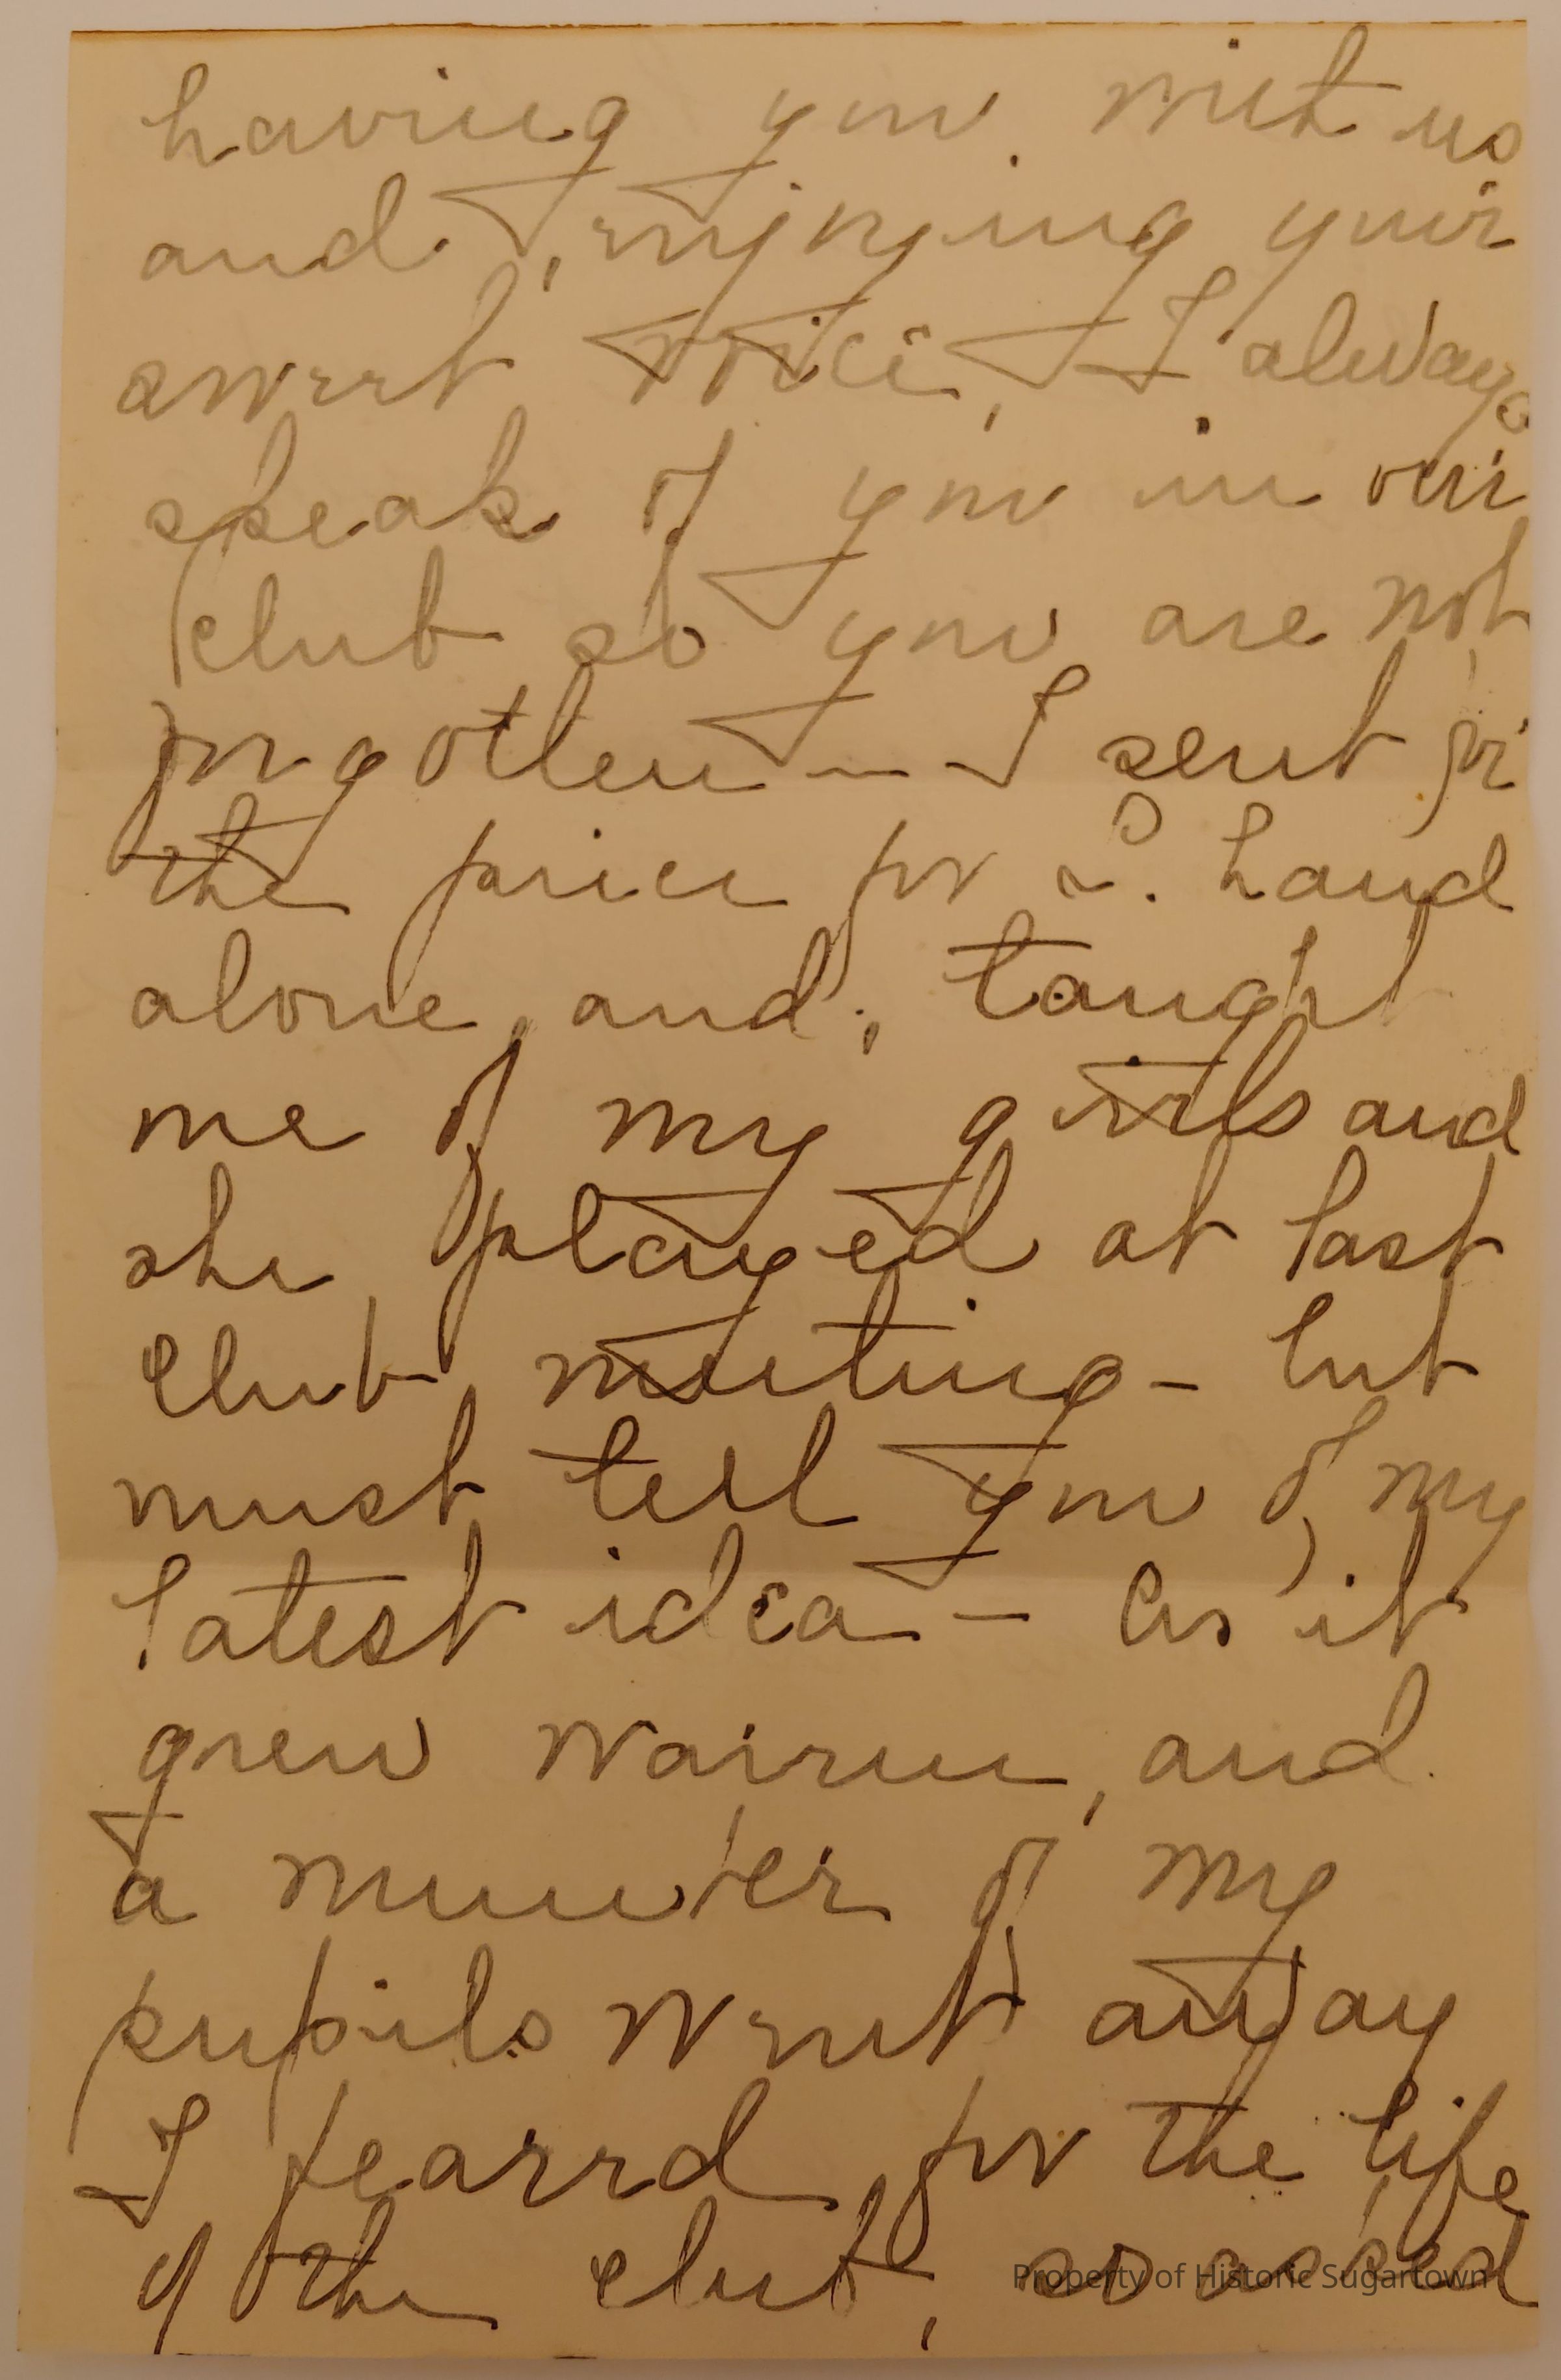 having you with us
and enjoying your
sweet voice, I always
speak of you in our
club so you are not
forgotten — I sent for
the piece for L. hand
alone, and, taught
one of my girls and
she played at last
club meeting - but
must tell you of my
latest idea - As it
grew warm, and
a number of my
pupils went away
I feared for the life
of the club, so asked
Property of Historic Sugartown